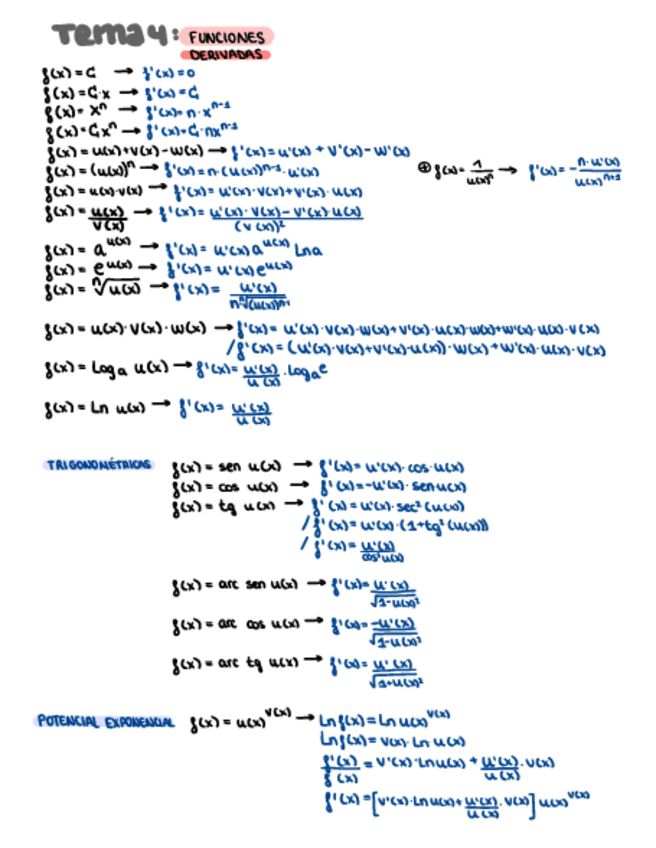 Tema 4: FUNCIONES
DERIVADAS
f(x) = C → f'(x) = 0
f(x) = C·x → f'(x) = C
f(x) = xⁿ → f'(x) = n·xⁿ⁻¹
f(x) = C·xⁿ → f'(x) = C·nxⁿ⁻¹
f(x) = u(x)+v(x)-w(x) → f'(x) = u'(x) + v'(x) - w'(x)
f(x) = (u(x))ⁿ → f'(x) = n·(u(x))ⁿ⁻¹·u'(x)
⊕ f(x) = 1/u(x)ⁿ → f'(x) = - n·u'(x)/u(x)ⁿ⁺¹
f(x) = u(x)·v(x) → f'(x) = u'(x)·v(x)+v'(x)·u(x)
f(x) = u(x)/v(x) → f'(x) = u'(x)·v(x)-v'(x)·u(x)/(v(x))²
f(x) = a^u(x) → f'(x) = u'(x) a^u(x) Ln a
f(x) = e^u(x) → f'(x) = u'(x) e^u(x)
f(x) = ⁿ√u(x) → f'(x) = u'(x)/n ⁿ√(u(x))ⁿ⁻¹
f(x) = u(x)·v(x)·w(x) → f'(x) = u'(x)·v(x)·w(x)+v'(x)·u(x)·w(x)+w'(x)·u(x)·v(x)
/ f'(x) = (u'(x)·v(x)+v'(x)·u(x))·w(x)+w'(x)·u(x)·v(x)
f(x) = Log a u(x) → f'(x) = u'(x)/u(x) · Log a e
f(x) = Ln u(x) → f'(x) = u'(x)/u(x)
TRIGONOMÉTRICAS
f(x) = sen u(x) → f'(x) = u'(x)·cos·u(x)
f(x) = cos u(x) → f'(x) = -u'(x)· sen·u(x)
f(x) = tg u(x) → f'(x) = u'(x)·sec²(u(x))
/ f'(x) = u'(x)·(1+tg²(u(x)))
/ f'(x) = u'(x)/cos²u(x)
f(x) = arc sen u(x) → f'(x) = u'(x)/√1-u(x)²
f(x) = arc cos u(x) → f'(x) = -u'(x)/√1-u(x)²
f(x) = arc tg u(x) → f'(x) = u'(x)/√1+u(x)²
POTENCIAL EXPONENCIAL f(x) = u(x)^v(x) → Ln f(x) = Ln u(x)^v(x)
Ln f(x) = v(x)·Ln·u(x)
f'(x)/f(x) = v'(x)·Ln u(x) + u'(x)/u(x)·v(x)
f'(x) = [v'(x)·Ln u(x) + u'(x)/u(x)·v(x)] u(x)^v(x)